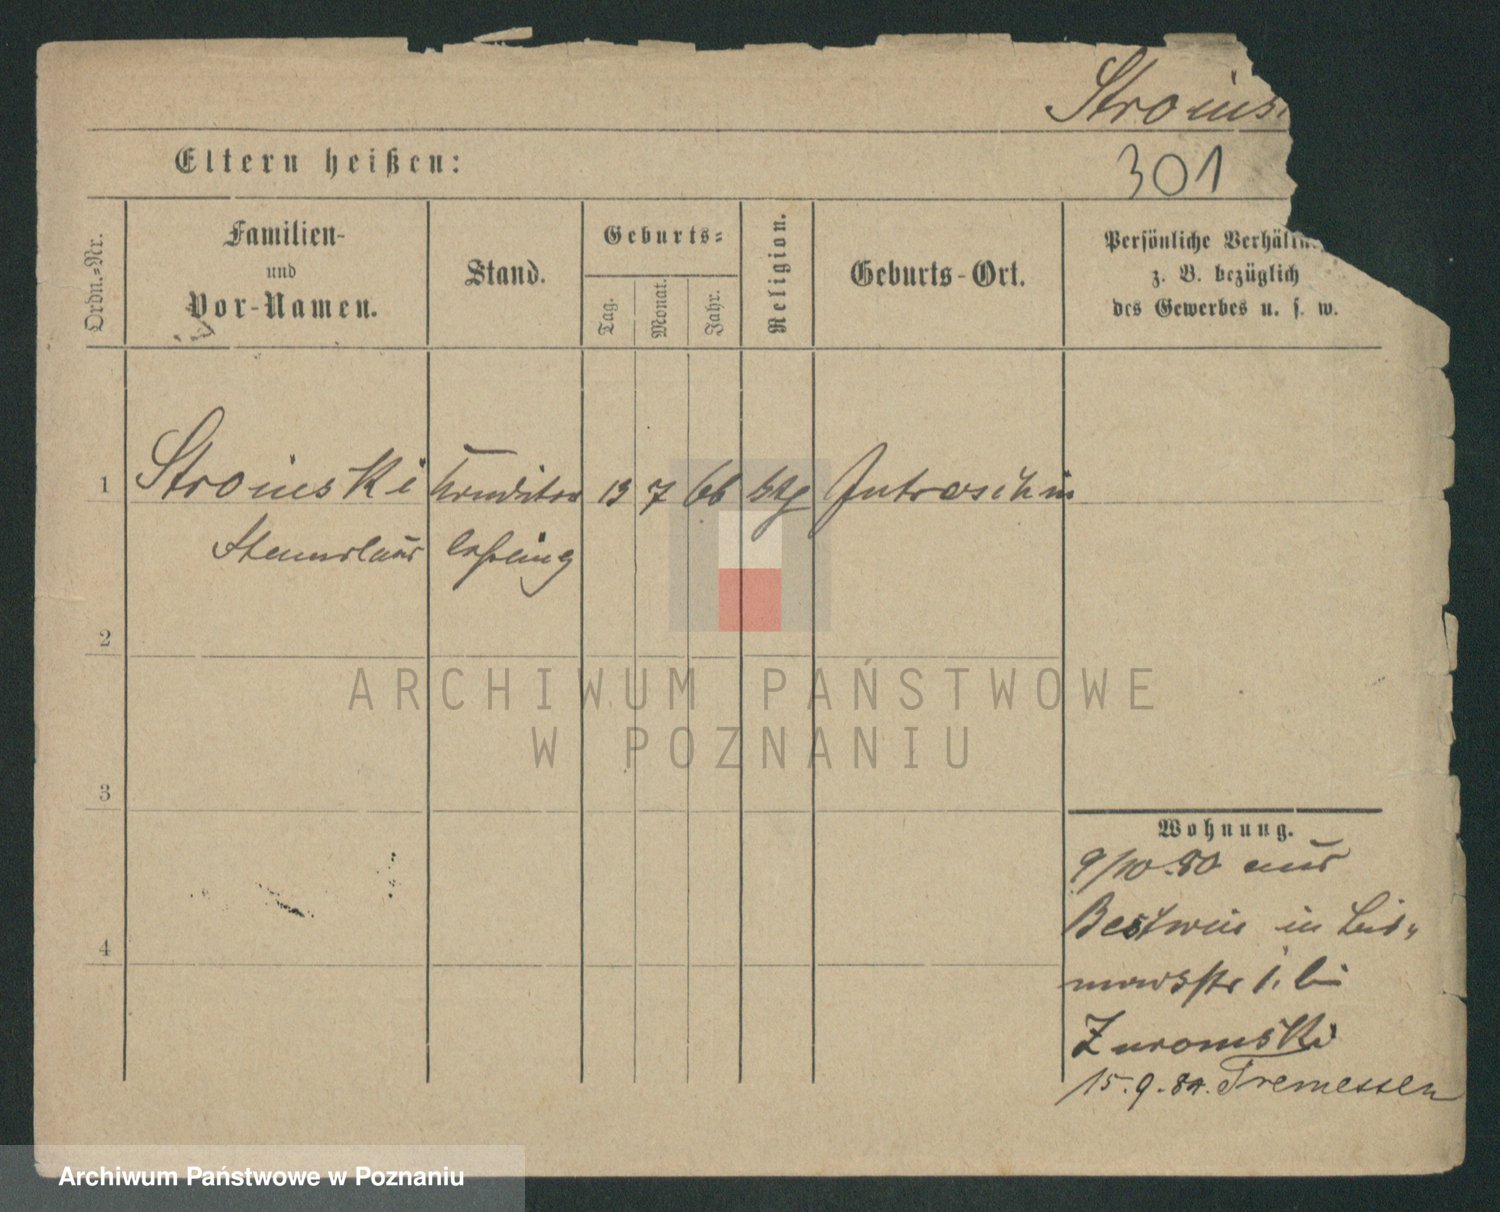 Stroinsk
Eltern heißen:
301
Ordn.=Nr.
Familien-
und
Vor-Namen.
Stand.
Geburts=
Tag.
Monat.
Jahr.
Religion.
Geburts-Ort.
Persönliche Verhältn
z. B. bezüglich
des Gewerbes u. s. w.
1
Stroinski Konditor 13 7 66 ktg Jutroschin
Stanislaus
2
ARCHIWUM PAŃSTWOWE
W POZNANIU
3
Wohnung.
9/10.80 aus
Bestwin in Bis-
marckstr 1. bei
Zuromski
4
15.9.84. Tremessen
Archiwum Państwowe w Poznaniu